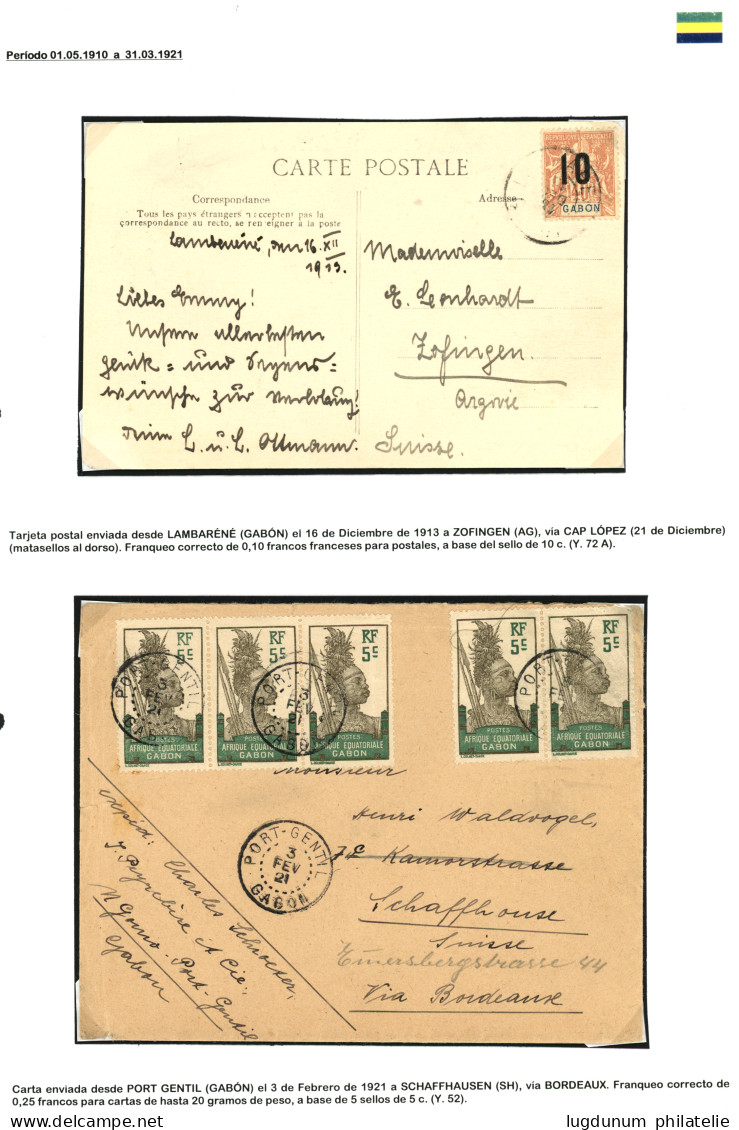 Período 01.05.1910 a 31.03.1921
CARTE POSTALE
Correspondance
Tous les pays étrangers n'acceptent pas la
correspondance au recto, se renseigner à la poste
Adresse
10
GABON
Lambaréné, den 16. XII
1913.
Liebes Emmy!
Unsere allerbesten
Glück= und Segens=
wünsche zur Verlobung!
L. u. L. Ottmann.
Mademoiselle
E. Leonhardt
Zofingen
Argovie
Suisse.
Tarjeta postal enviada desde LAMBARÉNÉ (GABÓN) el 16 de Diciembre de 1913 a ZOFINGEN (AG), vía CAP LÓPEZ (21 de Diciembre)
(matasellos al dorso). Franqueo correcto de 0,10 francos franceses para postales, a base del sello de 10 c. (Y. 72 A).
RF RF RF RF RF
5c 5c 5c 5c 5c
POSTES POSTES POSTES POSTES POSTES
AFRIQUE EQUATORIALE AFRIQUE EQUATORIALE AFRIQUE EQUATORIALE AFRIQUE EQUATORIALE AFRIQUE EQUATORIALE
GABON GABON GABON GABON GABON
PORT-GENTIL
3
FEV
21
GABON
Monsieur
Henri Waldvogel,
Kamorstrasse
Schaffhouse
Suisse
Emersbergstrasse 44
Via Bordeaux
expéd: Charles Schroeter,
et Cie.,
N'Gomo. Port-Gentil
Gabon
Carta enviada desde PORT GENTIL (GABÓN) el 3 de Febrero de 1921 a SCHAFFHAUSEN (SH), vía BORDEAUX. Franqueo correcto de
0,25 francos para cartas de hasta 20 gramos de peso, a base de 5 sellos de 5 c. (Y. 52).
delcampe.net
lugdunum philatelie